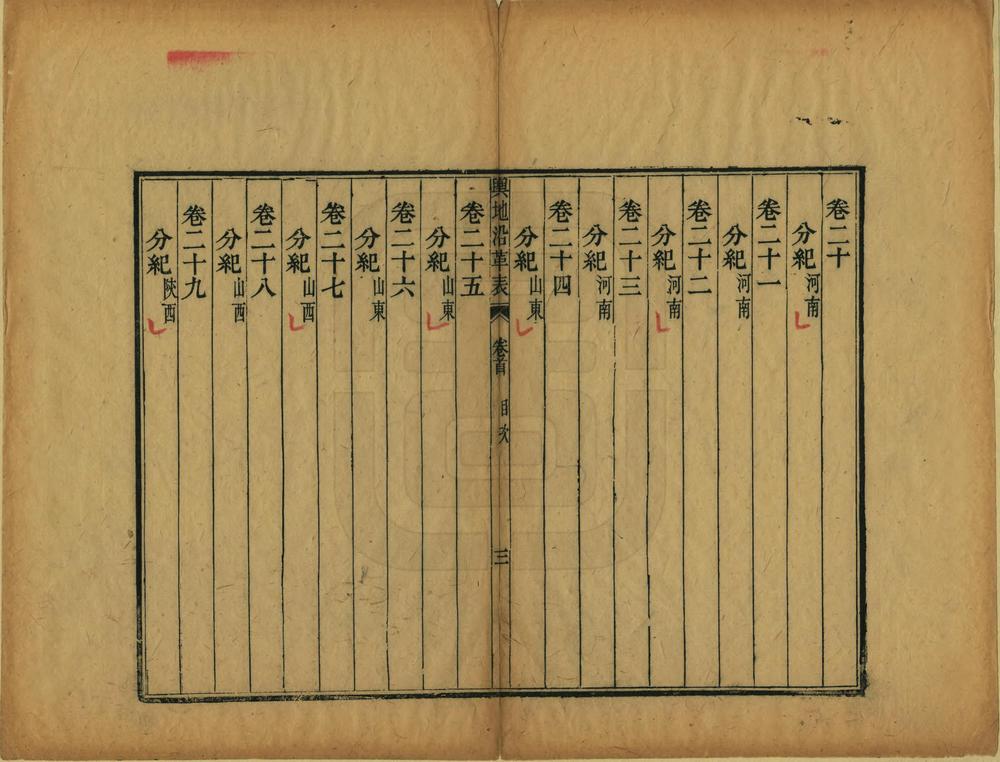 卷二十
分紀河南
卷二十一
分紀河南
卷二十二
分紀河南
卷二十三
分紀河南
卷二十四
分紀山東
輿地沿革表 卷首 目次 三
卷二十五
分紀山東
卷二十六
分紀山東
卷二十七
分紀山西
卷二十八
分紀山西
卷二十九
分紀陝西